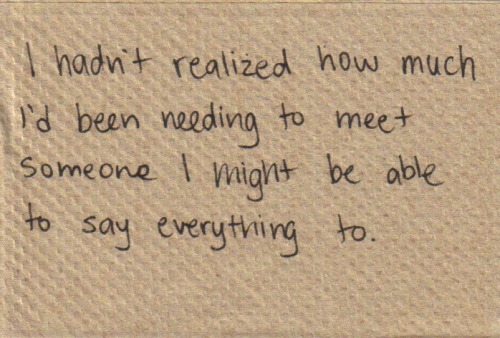 I hadn't realized how much
I'd been needing to meet
someone I might be able
to say everything to.